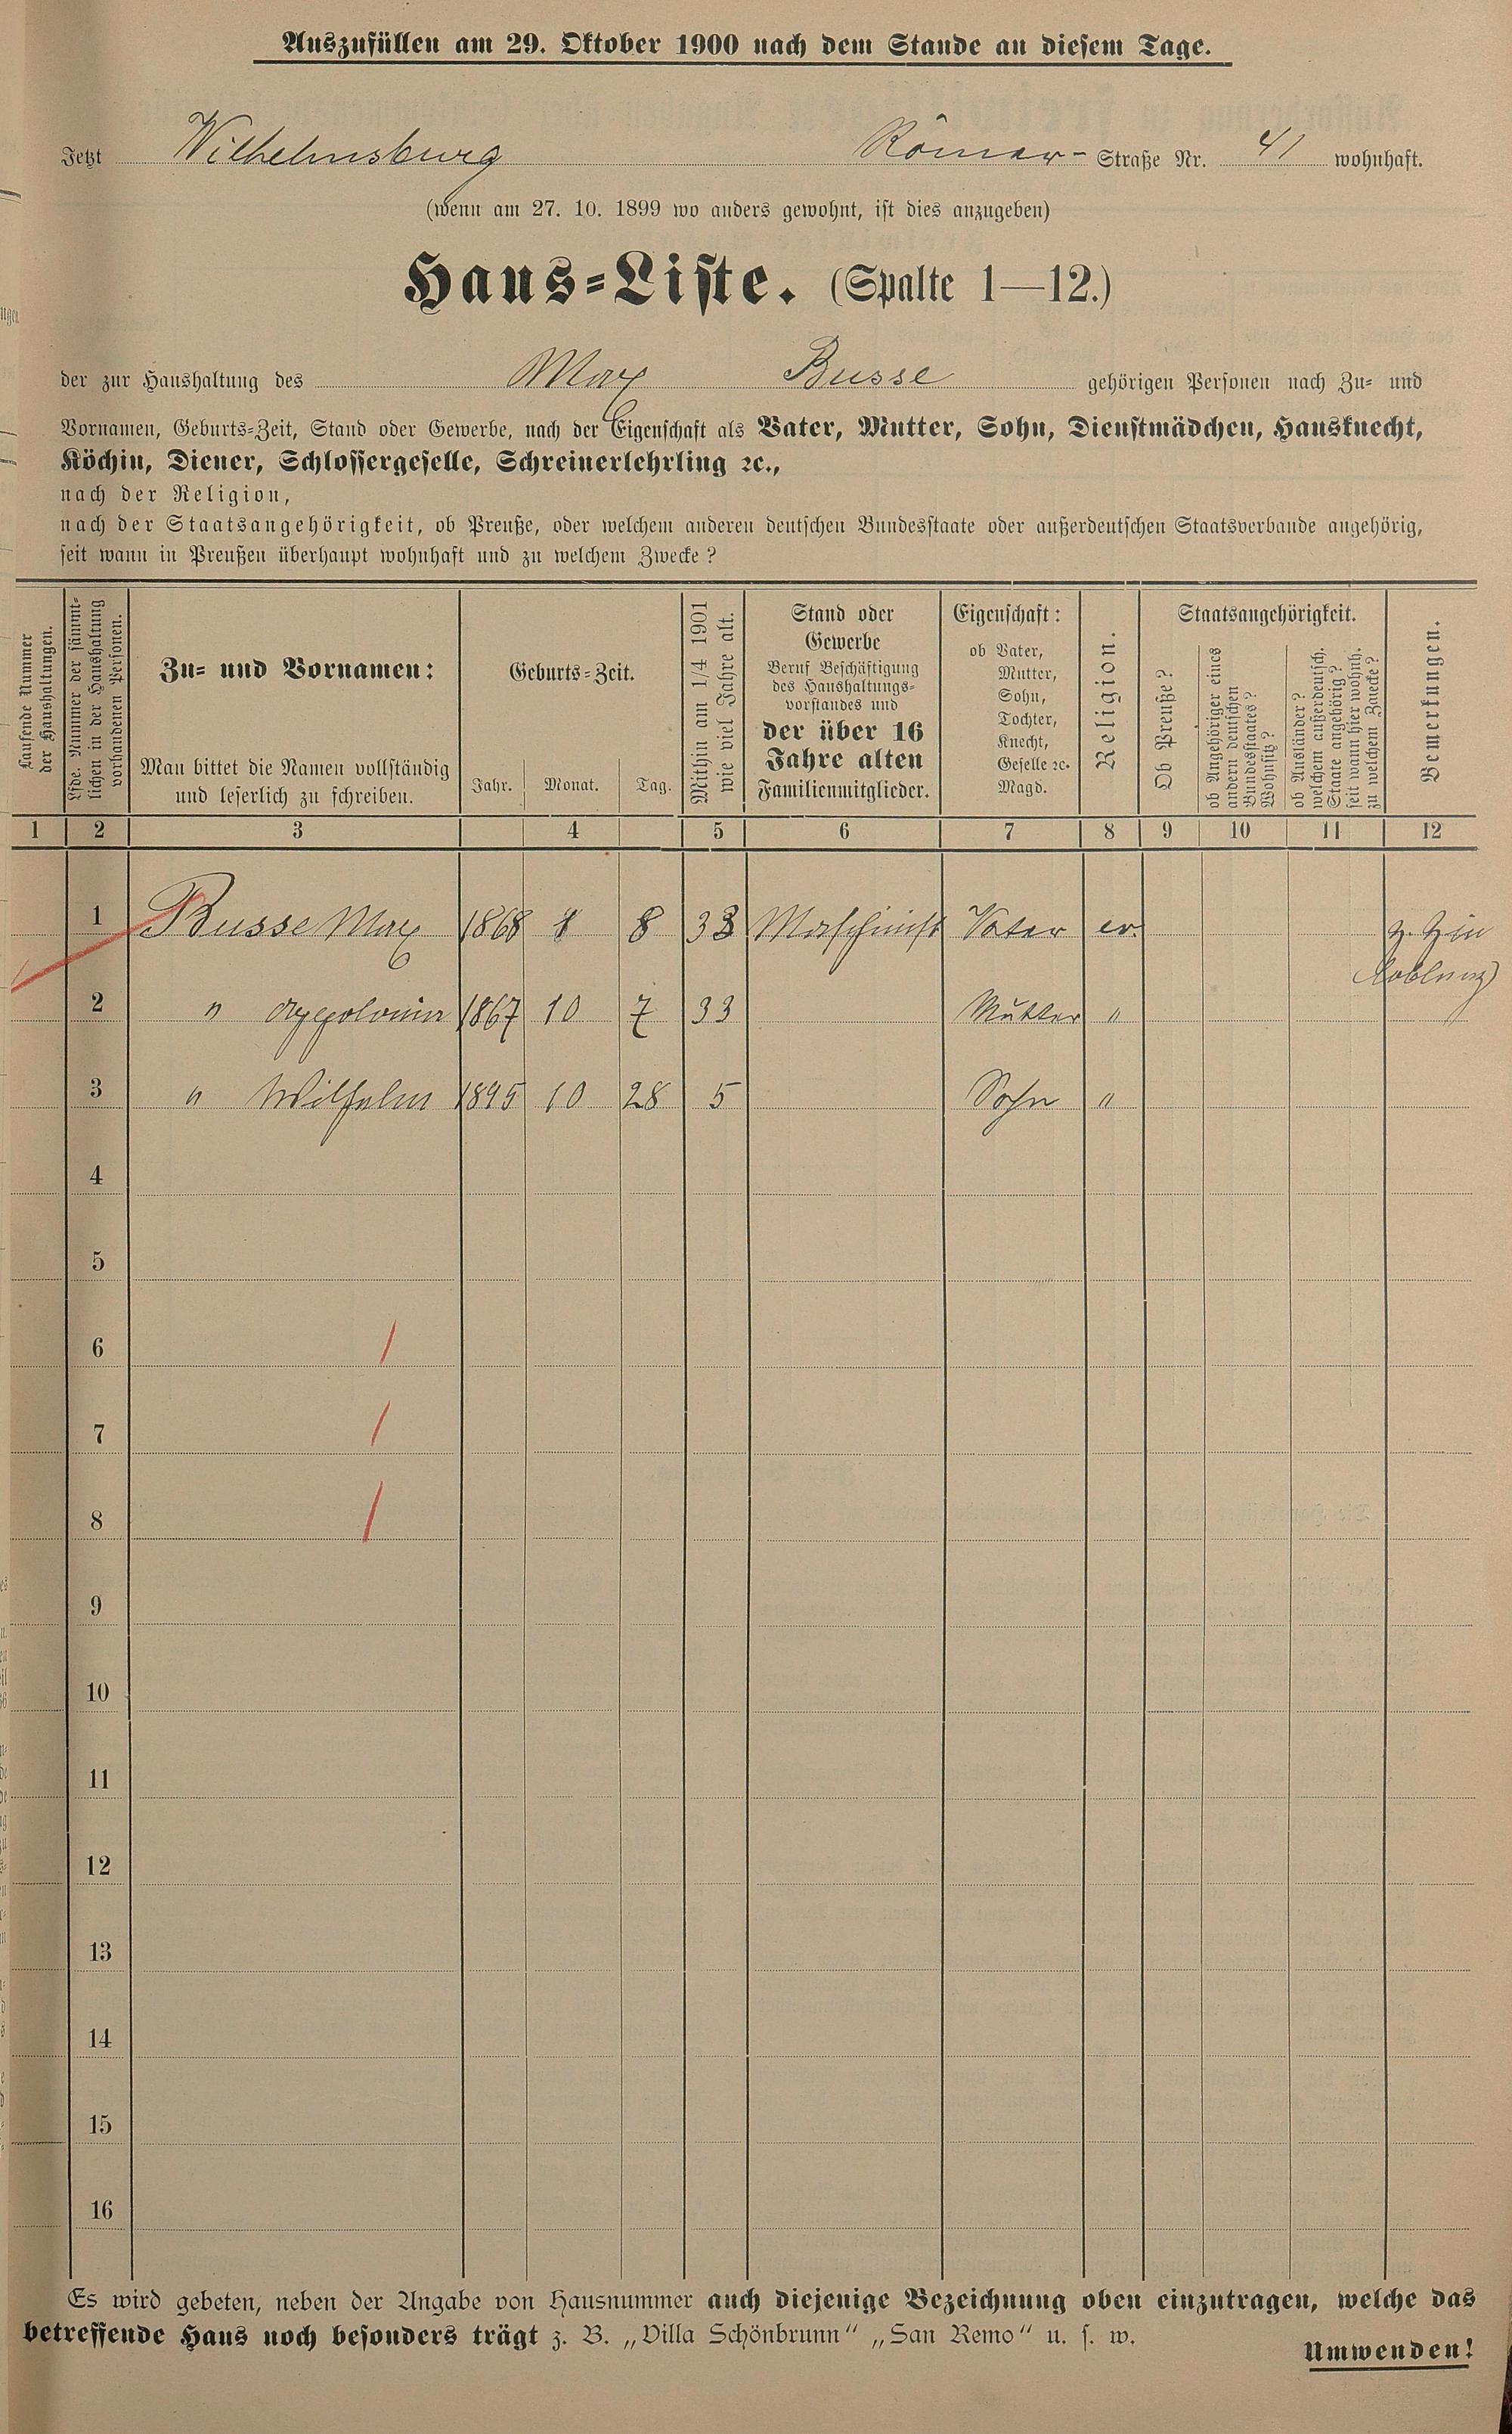 Auszufüllen am 29. Oktober 1900 nach dem Stande an diesem Tage.
Jetzt Wilhelmsburg Römer- Straße Nr. 41 wohnhaft.
(wenn am 27. 10. 1899 wo anders gewohnt, ist dies anzugeben)
Haus-Liste. (Spalte 1—12.)
der zur Haushaltung des Max Busse gehörigen Personen nach Zu- und
Vornamen, Geburts-Zeit, Stand oder Gewerbe, nach der Eigenschaft als Vater, Mutter, Sohn, Dienstmädchen, Hausknecht,
Köchin, Diener, Schlossergeselle, Schreinerlehrling ꝛc.,
nach der Religion,
nach der Staatsangehörigkeit, ob Preuße, oder welchem anderen deutschen Bundesstaate oder außerdeutschen Staatsverbande angehörig,
seit wann in Preußen überhaupt wohnhaft und zu welchem Zwecke?
Laufende Nummer
der Haushaltungen.
Lfde. Nummer der sämmt-
lichen in der Haushaltung
vorhandenen Personen.
Zu- und Vornamen:
Man bittet die Namen vollständig
und leserlich zu schreiben.
Geburts-Zeit.
Jahr. Monat. Tag.
Mithin am 1/4 1901
wie viel Jahre alt.
Stand oder
Gewerbe
Beruf Beschäftigung
des Haushaltungs-
vorstandes und
der über 16
Jahre alten
Familienmitglieder.
Eigenschaft:
ob Vater,
Mutter,
Sohn,
Tochter,
Knecht,
Geselle ꝛc.
Magd.
Religion.
Staatsangehörigkeit.
Ob Preuße?
ob Angehöriger eines
andern deutschen
Bundesstaates?
Wohnsitz?
ob Ausländer?
welchem außerdeutsch.
Staate angehörig?
seit wann hier wohnh.
zu welchem Zwecke?
Bemerkungen.
1 2 3 4 5 6 7 8 9 10 11 12
1 Busse Max 1868 8 33 Maschinist Vater ev.
2 " Appolonia 1867 10 7 33 Mutter "
3 " Wilhelm 1895 10 28 5 Sohn "
4
5
6
7
8
9
10
11
12
13
14
15
16
Es wird gebeten, neben der Angabe von Hausnummer auch diejenige Bezeichnung oben einzutragen, welche das
betreffende Haus noch besonders trägt z. B. „Villa Schönbrunn" „San Remo" u. s. w.
Umwenden!